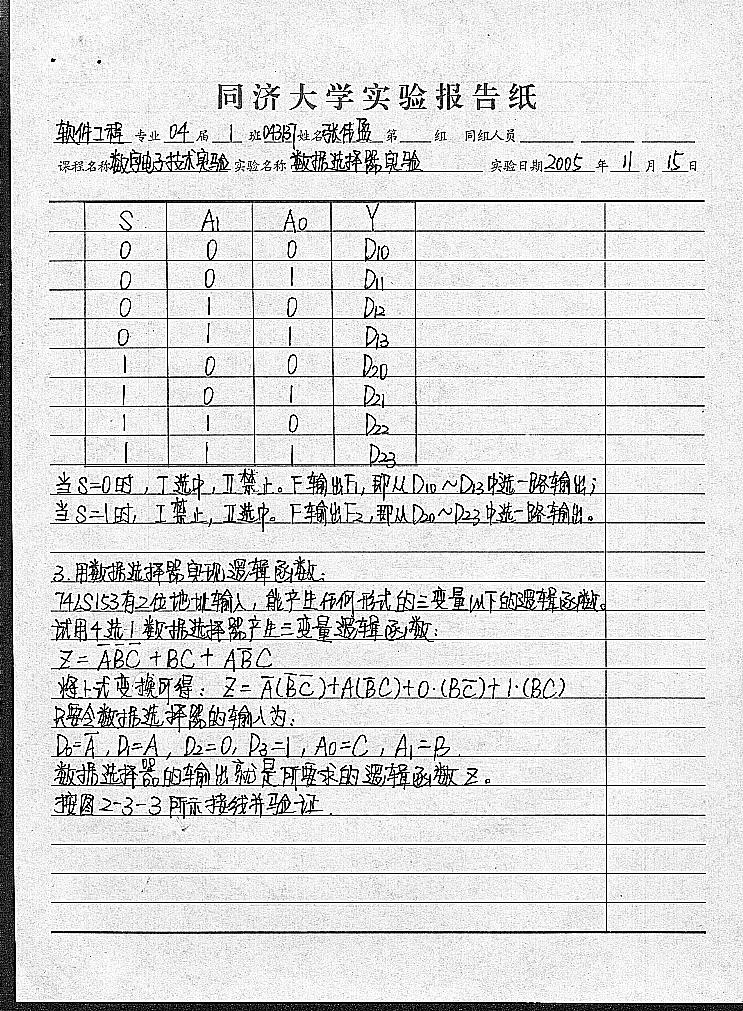 同济大学实验报告纸
软件工程 专业 04 届 1 班 姓名 张伟 第 组 同组人员
课程名称 数字电子技术实验 实验名称 数据选择器实验 实验日期 2005 年 11 月 15 日
S A1 A0 Y
0 0 0 D10
0 0 1 D11
0 1 0 D12
0 1 1 D13
1 0 0 D20
1 0 1 D21
1 1 0 D22
1 1 1 D23
当S=0时，I选中，II禁止。F输出F1，即从D10～D13中选一路输出；
当S=1时，I禁止，II选中。F输出F2，即从D20～D23中选一路输出。
3.用数据选择器实现逻辑函数：
74LS153有2位地址输入，能产生任何形式的三变量以下的逻辑函数。
试用4选1数据选择器产生三变量逻辑函数：
Z = A̅B̅C̅ + BC + AB̅C
将上式变换可得：Z = A̅(B̅C̅)+A(B̅C)+0·(BC̅)+1·(BC)
只要令数据选择器的输入为：
D0=A̅，D1=A，D2=0，D3=1，A0=C，A1=B.
数据选择器的输出就是所要求的逻辑函数Z。
按图2-3-3所示接线并验证.